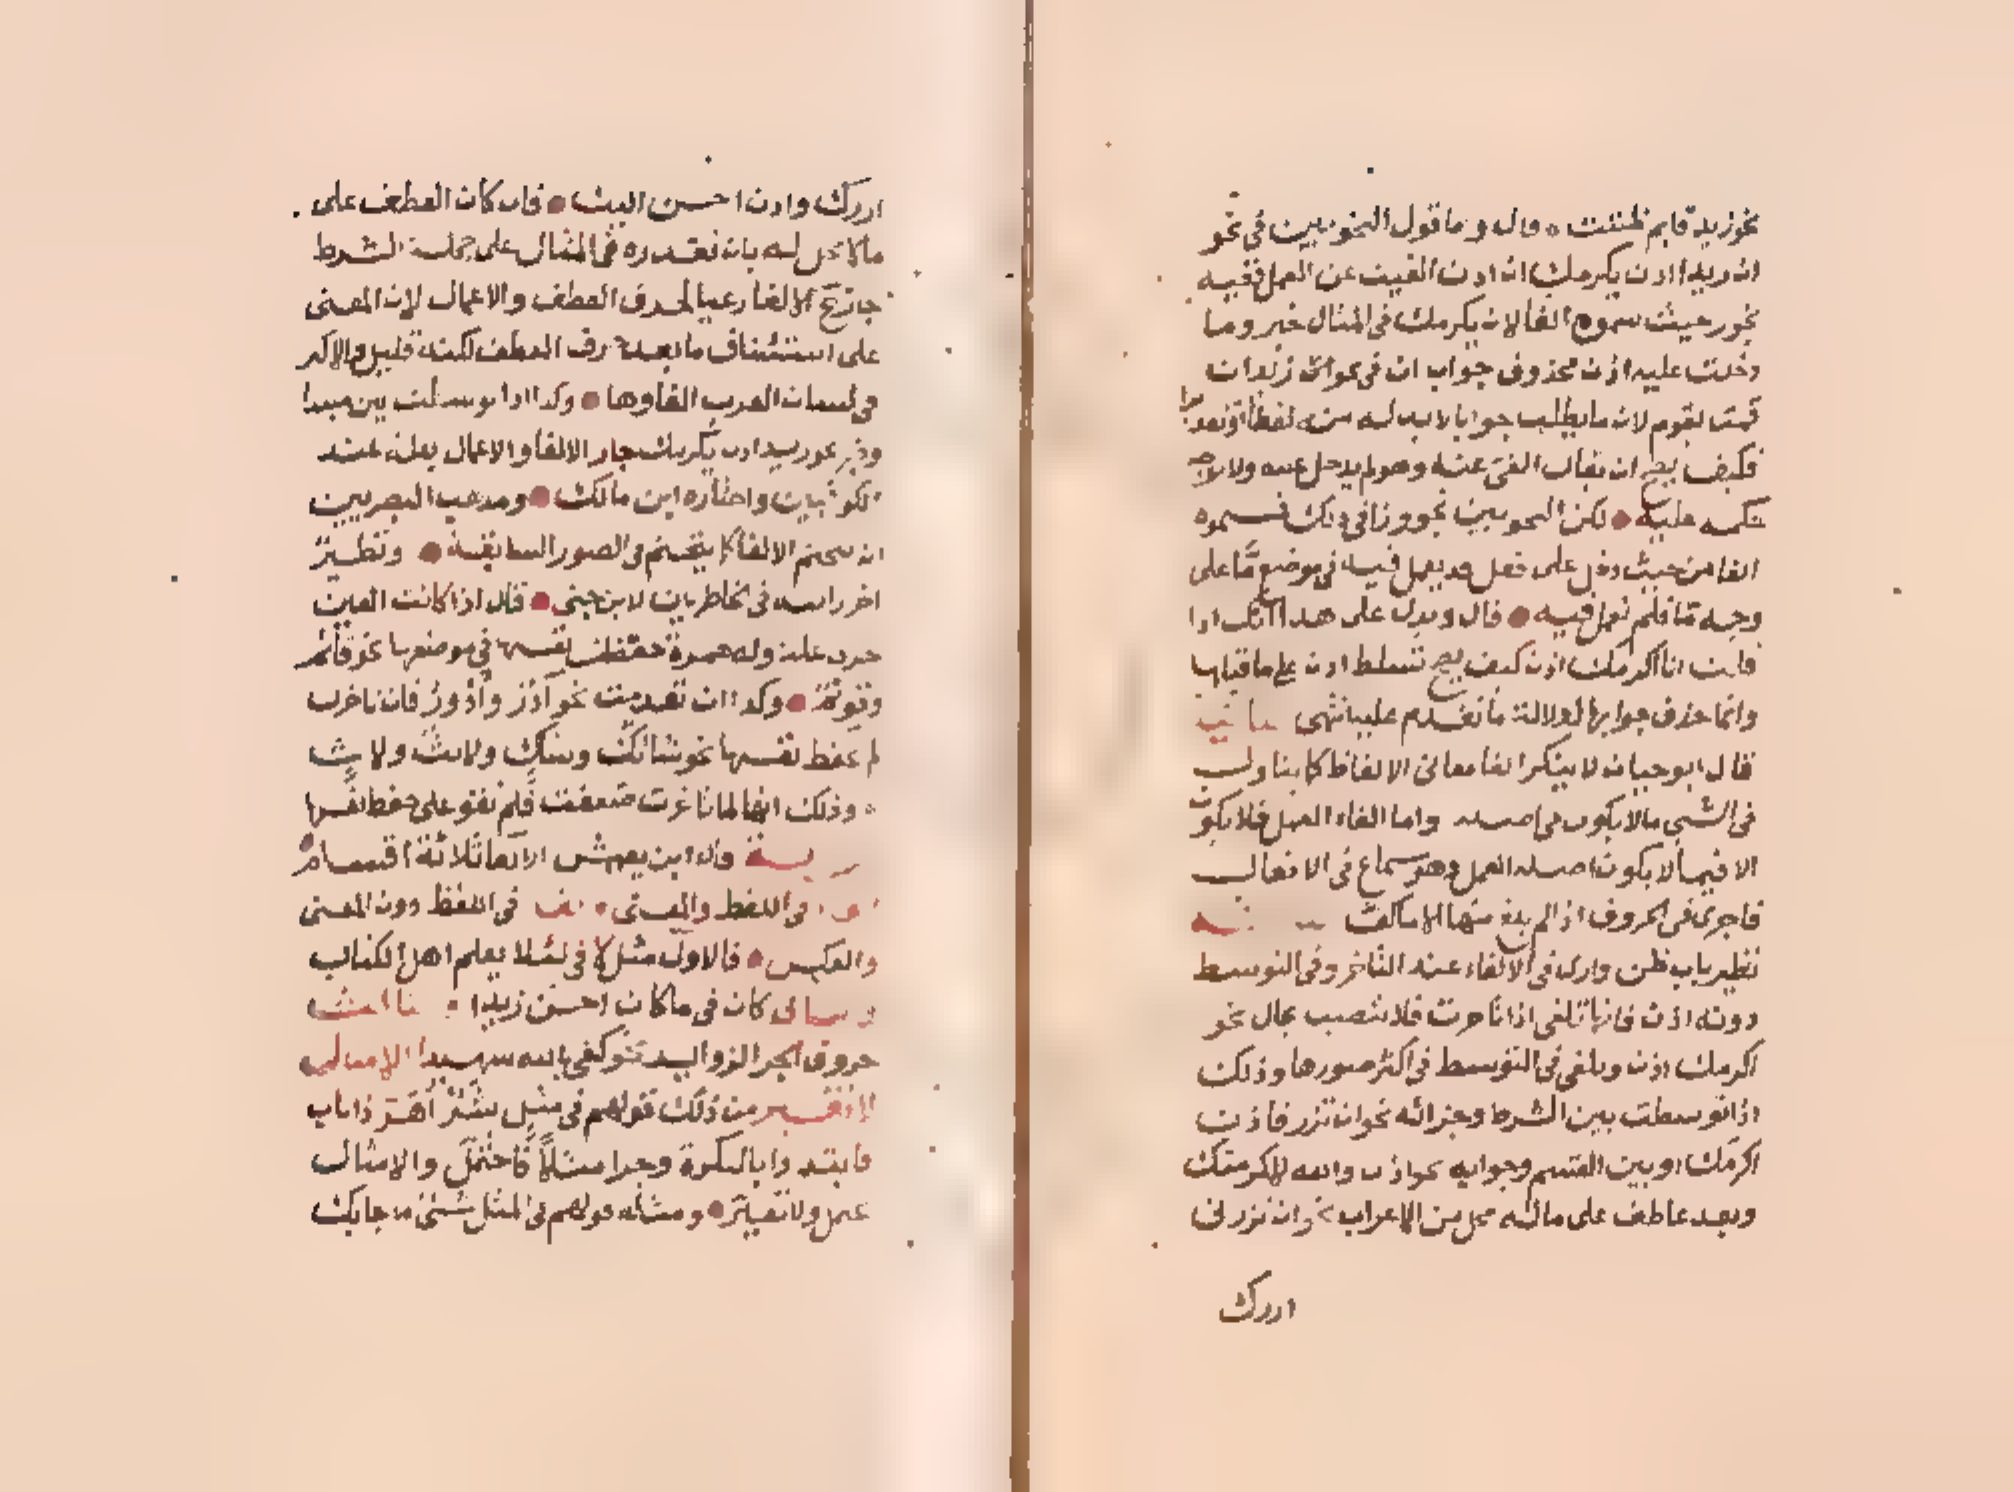 نحو زيد قايم ظننت ۰ قال وما قول النحويين في نحو
ان زيدا اذن يكرمك ان اذن الغيت عن العمل ففيه
تجوز حيث سموه الغا لان يكرمك في المثال خبر وما
دخلت عليه اذن محذوف جواب ان في نحو ان زيدا ان
قمت يقوم لان ما يطلب جوابا لا بد له منه لفظا او تقديرا
فكيف يصح ان يقال الغي عنه وهو لم يدخل عليه ولا
عليه ● لكن النحويين تجوزوا في ذلك فسموه
الغا من حيث دخل على فعل قد يعمل فيه في موضع ما على
وجه ما فلم تعمل فيه ● قال ويدل على هذا انك اذا
قلت انا اكرمك اذن كيف يصح تسلط اذن على ما قبلها
وانما حذف جوابها لدلالة ما تقدم عليه انتهى
قال ابو حيان لا ينكر الغا معاني الالفاظ كما يتاول
في الشي ما لا يكون في اصله واما الغاء العمل فلا يكون
الا فيما لا يكون اصله العمل وهو سماع في الافعال
فاجري في الحروف اذ لم يلغ منها الا ما كف
نظير باب ظن وارى في الالغاء عند التاخر وفي التوسط
دونه اذن فانها تلغى اذا تاخرت فلا تنصب بحال نحو
اكرمك اذن وتلغى في التوسط في اكثر صورها وذلك
اذا توسطت بين الشرط وجزائه نحو ان تزر فاذن
اكرمك او بين القسم وجوابه نحو اذن والله لاكرمنك
وبعد عاطف على ما له محل من الاعراب نحو ان تزرني
ازرك
ازرك واذن احسن اليك ● فان كان العطف على
ما لا محل له بان تقدره في المثال على جملة الشرط
جاز الالغا رعيا لحرف العطف والاعمال لان المعنى
على استئناف ما بعد حرف العطف لكنه قليل والاكثر
في لسان العرب الغاوها ● وكذا اذا توسطت بين مبتدا
وخبر نحو زيد اذن يكرمك جاز الالغا والاعمال بقلة عند
الكوفيين واختاره ابن مالك ● ومذهب البصريين
انه يتحتم الالغا كما يتحتم في الصور السابقة ● ونظير
اخر رايته في خاطريات لابن جني ● قال اذا كانت العين
حرف علة وله همزة حفظت نفسها في موضعها نحو قائم
وقوئم ● وكذا ان تقدمت نحو آدر وأدؤر فان تاخرت
لم تحفظ نفسها نحو شائك وشاك ولائث ولاث
۰ وذلك انها لما تاخرت ضعفت فلم تقو على حفظ نفسها
قال ابن يعيش الالغا ثلاثة اقسام
في اللفظ والمعنى ● في اللفظ دون المعنى
والعكس ● فالاول مثل لا في لئلا يعلم اهل الكتاب
كان في ما كان احسن زيدا ●
حروف الجر الزوايد نحو كفى بالله شهيدا الامثال
لا تغير من ذلك قولهم في مثل شر اهر ذا ناب
فابتدوا بالنكرة وجرا مثلا فاحتمل والامثال
تحمل ولا تغير ● ومثله قولهم في المثل شيء ما جابك